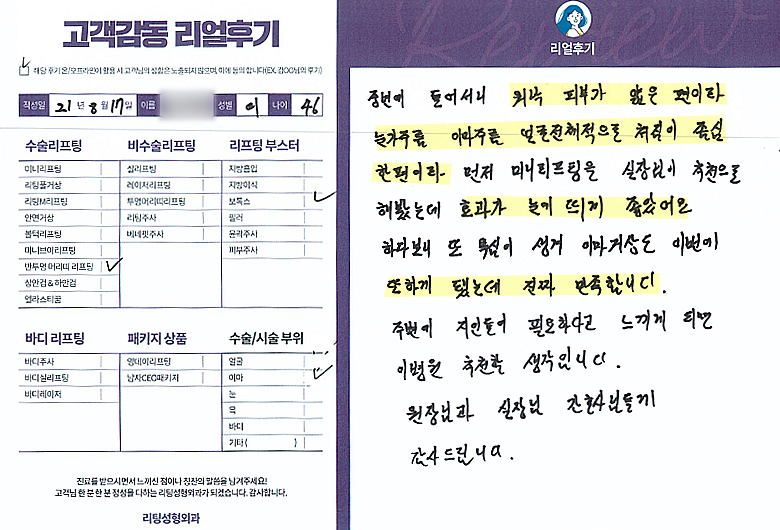 고객감동 리얼후기
해당 후기 온/오프라인에 활용 시 고객님의 성함은 노출되지 않으며, 이에 동의 합니다(EX. 김OO님의 후기)
작성일 21년 8월 17일 이름 성별 여 나이 46
수술리프팅
미니리프팅
리팅풀거상
리팅M리프팅
안면거상
볼턱리프팅
미니브이리프팅
반투명 머리띠 리프팅
상안검 & 하안검
엘라스티꿈
비수술리프팅
실리프팅
레이저리프팅
투명머리띠리프팅
리팅주사
비네핏주사
리프팅 부스터
지방흡입
지방이식
보톡스
필러
윤곽주사
피부주사
바디 리프팅
바디주사
바디실리프팅
바디레이저
패키지 상품
원데이리프팅
남자CEO패키지
수술/시술 부위
얼굴
이마
눈
목
바디
기타 ( )
진료를 받으시면서 느끼신 점이나 칭찬의 말씀을 남겨주세요!
고객님 한 분 한 분 정성을 다하는 리팅성형외과가 되겠습니다. 감사합니다.
리팅성형외과
Review
리얼후기
주변이 들어서니 워낙 피부가 얇은 편이라
눈가주름 이마주름 얼굴전체적으로 처짐이 좀심
한편이라 먼저 미니리프팅을 실장님이 추천으로
해봤는데 효과가 눈에 띄게 좋았어요
하다보니 또 욕심이 생겨 이마거상도 이번에
또하게 됐는데 진짜 만족합니다.
주변에 지인들이 필요하다고 느끼게 되면
이병원 추천할 생각입니다.
원장님과 실장님 간호사님들께
감사드립니다.